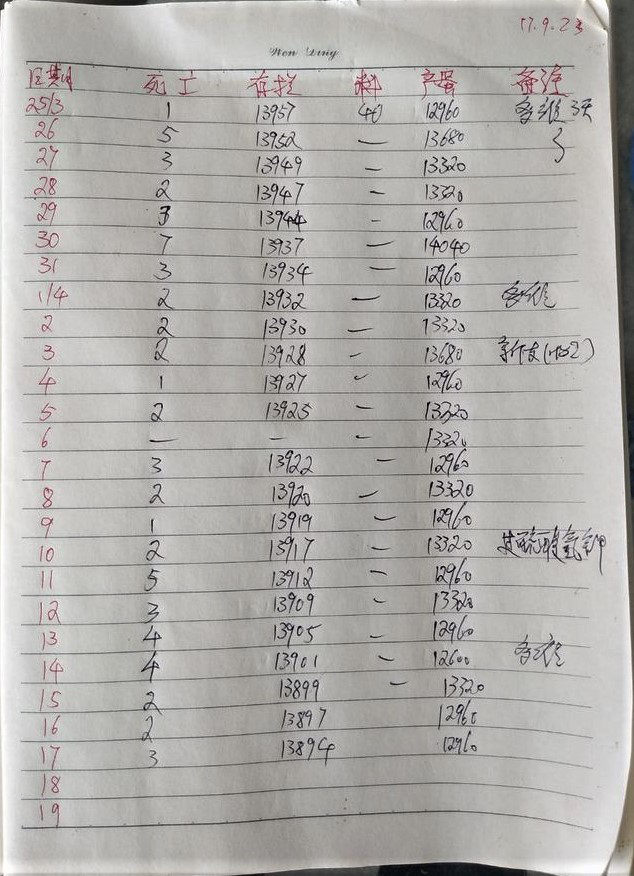 17.9.23
Wen Ding
日期 死亡 存栏 料 产蛋 备注
25/3 1 13957 40 12960 多维 3天
26 5 13952 — 13680
27 3 13949 — 13320
28 2 13947 — 13320
29 3 13944 - 12960
30 7 13937 — 14040
31 3 13934 — 12960
1/4 2 13932 — 13320 多维
2 2 13930 — 13320
3 2 13928 - 13680
4 1 13927 - 12960
5 2 13925 — 13320
6 — — — 13320
7 3 13922 — 12960
8 2 13920 — 13320
9 1 13919 — 12960
10 2 13917 — 13320 硫酸氢钾
11 5 13912 — 12960
12 3 13909 - 13320
13 4 13905 - 12960
14 4 13901 - 12600 多维
15 2 13899 — 13320
16 2 13897 12960
17 3 13894 12960
18
19